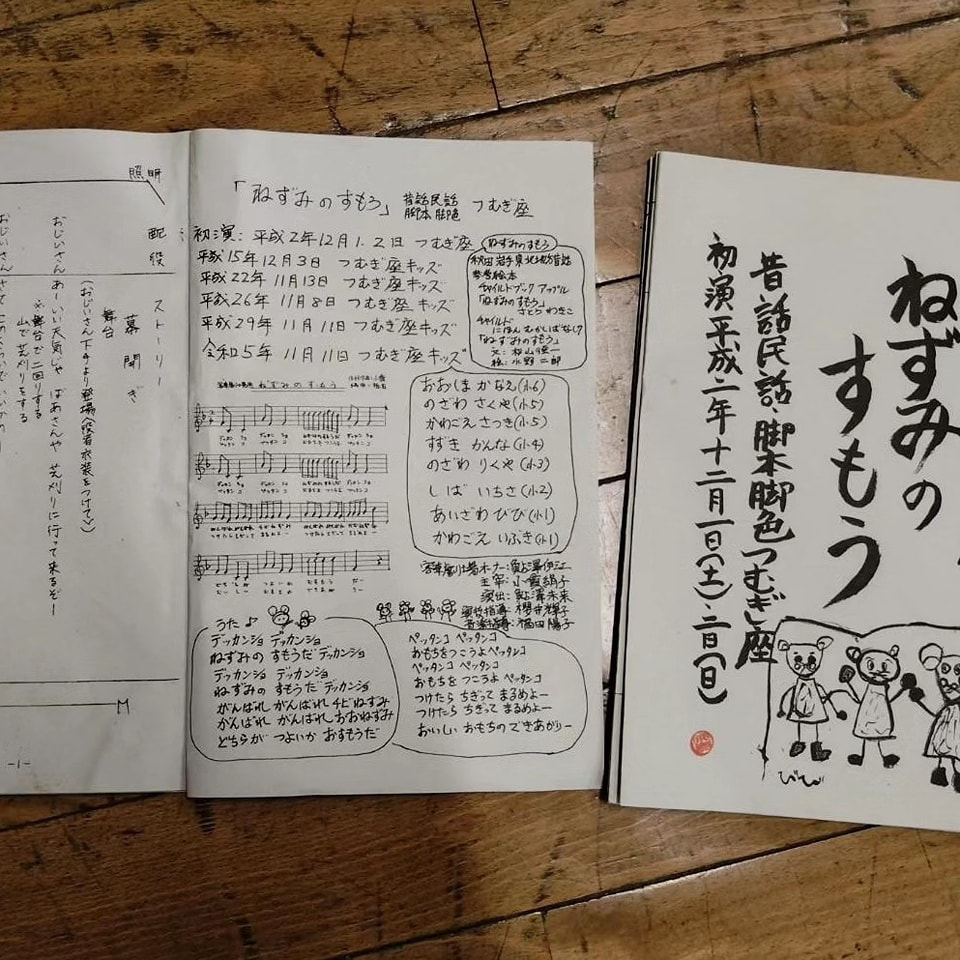 照明
配役
ストーリー
幕開き
舞台
(おじいさん下手より登場
おじいさん あーいい天気じゃ ばあさんや 芝刈りに行って来るぞー
※舞台で二回りする
山で芝刈りをする
おじいさん
M
-1-
「ねずみのすもう」 昔話民話 脚本 脚色 つむぎ座
初演:平成2年12月1.2日 つむぎ座
平成15年12月3日 つむぎ座キッズ
平成22年11月13日 つむぎ座キッズ
平成26年11月8日 つむぎ座キッズ
平成29年11月11日つむぎ座キッズ
令和5年11月11日つむぎ座キッズ
ねずみのすもう
参考絵本
チャイルドブック アップル
「ねずみのすもう」
さとう わきこ
チャイルド
にほん むかしばなし
「ねずみのすもう」
絵:水野二郎
おおしま かなえ(小6)
のざわ さくや(小5)
かわごえ さつき(小5)
すずき かんな(小4)
のざわ りくや(小3)
しば いちさ(小2)
あいざわ びび(小1)
かわごえ いぶき(小1)
ねずみのすもう
うた♪
デッカンショ デッカンショ
ねずみの すもうだ デッカンショ
デッカンショ デッカンショ
ねずみの すもうだ デッカンショ
がんばれし がんばれし チビねずみ
がんばれし がんばれし おおねずみ
どちらが つよいか おすもうだ
ペッタンコ ペッタンコ
おもちをつこうよ ペッタンコ
ペッタンコ ペッタンコ
おもちを つこうよ ペッタンコ
つけたら ちぎって まるめよー
つけたら ちぎって まるめよー
おいしい おもちの できあがりー
ねずみの
すもう
昔話民話・脚本脚色つむぎ座
初演平成二年十二月一日(土)・二日(日)
びび